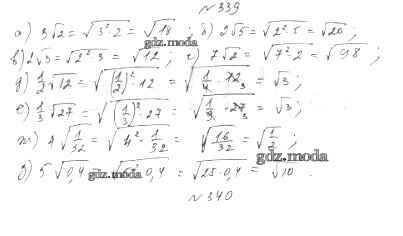 №339
а) 3√2 = √3²·2 = √18 ; б) 2√5 = √2²·5 = √20 ;
в) 2√3 = √2²·3 = √12 ; г) 7√2 = √7²·2 = √98 ;
д) 1/2 √12 = √(1/2)²·12 = √1/4·12 3 = √3 ;
е) 1/3 √27 = √(1/3)²·27 = √1/9·27 3 = √3 ;
ж) 4√1/32 = √4²·1/32 = √16/32 = √1/2 ;
з) 5√0,4 = 0,4 = √25·0,4 = √10 .
№340
gdz.moda
gdz.moda
gdz.moda